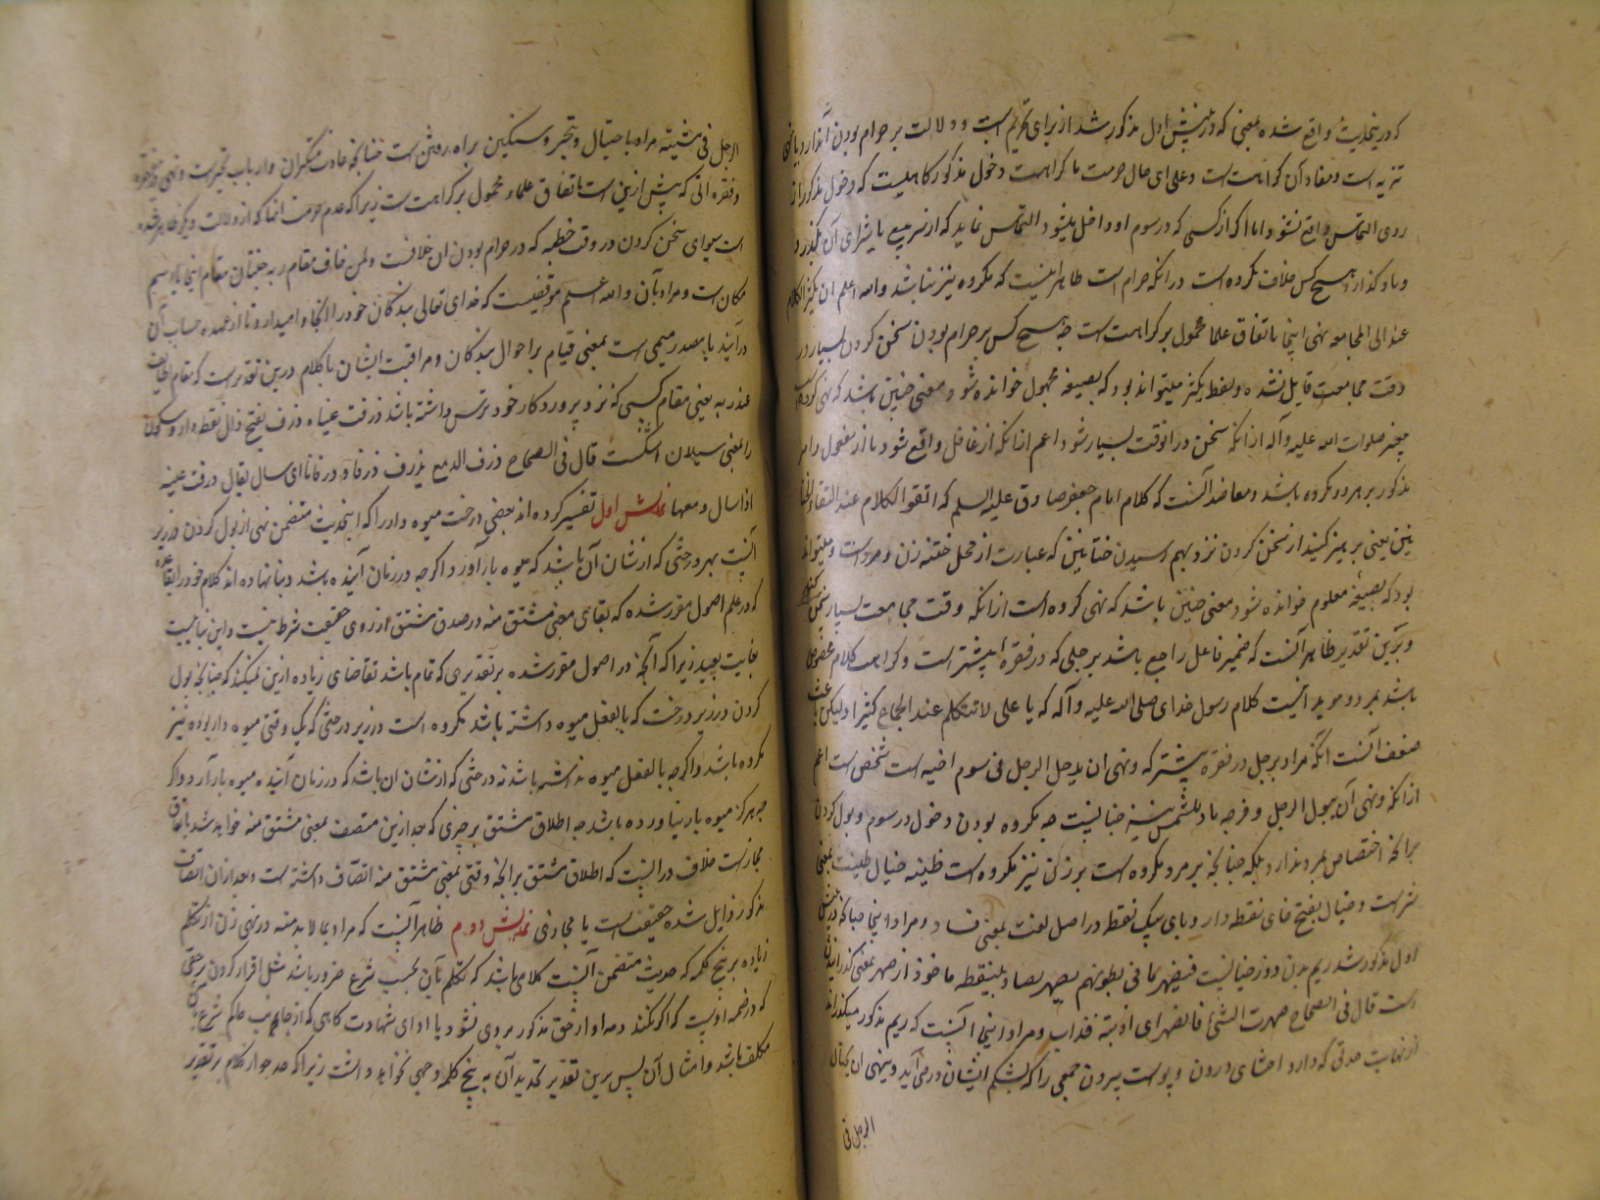 که درینحدیث واقع شده بمعنی که در نمایش اول مذکور شد از برای تحریم است و دلالت بر حرام بودن آن دارد یا نهی
تنزیه است و مفاد آن کراهت است و علی ای حال حرمت یا کراهت دخول مذکور گاهیست که دخول مذکور از
روی التماس واقع نشود اما اگر از کسی که در سوم او داخل میشود التماس نماید که از سر بیع یا شرای آن بگذرد
و باو گذارد هیچ کس خلاف نکرده است در آنکه حرام است ظاهر اینست که مکروه نیز نباشد والله اعلم ان یکثر الکلام
عند المجامعه نهی اینجا باتفاق علما محمول بر کراهت است چه هیچ کس بر حرام بودن سخن کردن بسیار در
وقت مجامعت قایل نشده و لفظ یکثر میتواند بود که بصیغه مجهول خوانده شود و معنی چنین باشد که نهی کرده
پیغمبر صلوات الله علیه وآله از آنکه سخن در آنوقت بسیار شود اعم از آنکه از فاعل واقع شود یا از مفعول و امر
مذکور بر هر دو مکروه باشد و معاضد آنست که کلام امام جعفر صادق علیه السلم که اتقوا الکلام عند التقاء الختا
نین یعنی بپرهیز کنید از سخن کردن نزد بهم رسیدن ختانین که عبارت از محل ختنه زن و مرد است و میتواند
بود که بصیغه معلوم خوانده شود و معنی چنین باشد که نهی کرده است از آنکه وقت مجامعت بسیار سخن کند
و برین تقدیر ظاهر آنست که ضمیر فاعل راجع باشد برجلی که در فقره پیشتر است و کراهت کلام مخصوص
باشد بمرد و موید آنست کلام رسول خدای صلی الله علیه وآله که یا علی لا تتکلم عند الجماع کثیرا ولیکن باعث
ضعف آنست آنکه مراد برجل در فقره پیشتر که ونهی ان یدخل الرجل فی سوم اخیه است شخص است اعم
از آنکه ونهی ان یبول الرجل و فرجه باد للشمس نیز چنانیست چه مکروه بودن دخول در سوم و بول کردن
برآنجه اختصاص بمرد ندارد بلکه چنانچه بر مرد مکروه است بر زن نیز مکروه است طینه خبال طینت بمعنی
شر است و خبال بفتح خای نقطه دار و بای یک نقطه در اصل لغت بمعنی فساد و مراد اینجا چنانکه در نمایش
اول مذکور شد ریم بدن دوزخیانست فیصهر بما فی بطونهم یصهر بصاد بینقطه ماخوذ از صهر بمعنی گذرانیدن
است قال فی الصحاح صهرت الشئ فانصهر ای اذبته فذاب و مراد اینجا آنست که ریم مذکور میگذراند
از نهایت حدتی که دارد احشای درون و پوست بیرون جمعی را که بشکم ایشان در می آید وینهی ان یختال
الرجل فی
الرجل فی مشیته مراد باختیال و تجبر و سنگین براه رفتن است چنانچه عادت متکبران و ارباب تجبر است ونهی
وفقره اتی که پیش ازین است باتفاق علما محمول بر کراهت است زیرا که عدم حرمت انها که از دلالت دیگر ظاهر شده
است سوای سخن کردن در وقت خطبه که در حرام بودن ان خلافست ولمن خاف مقام ربه جنتان مقام اینجا یا اسم
مکان است و مراد بآن والله اعلم موقفیست که خدای تعالی بندگان خود را انجا وا میدارد تا از عهده حساب آن
درآیند یا مصدر میمی است بمعنی قیام بر احوال بندگان و مراقبت ایشان یا کلام درین تقدیر است که مقام الخایف
عند ربه یعنی مقام کسی که نزد پروردگار خود ترس داشته باشد ذرفت عیناه ذرف بفتح ذال نقطه دار و سکون
را بمعنی سیلان اشکست قال فی الصحاح ذرف الدمع یذرف ذرفا و ذرفانا ای سال یقال ذرفت عینه
اذا سال دمعها نمایش اول تفسیر کرده اند بعضی درخت میوه دار را که اینحدیث متضمن نهی از بول کردن در زیر
آنست بهر درختی که از شان آن باشد که میوه بار آورد اگر چه در زمان آینده باشد و بنا نهاده اند کلام خود را بقاعده
که در علم اصول مقرر شده که بقای معنی مشتق منه در صدق مشتق از روی حقیقت شرط نیست و این بناییست
بغایت بعید زیرا که آنچه در اصول مقرر شده بر تقدیری که تمام باشد تقاضای زیاده ازین نمیکند که چنانچه بول
کردن در زیر درخت که بالفعل میوه داشته باشد مکروه است در زیر درختی که یک وقتی میوه دار بوده نیز
مکروه باشد و اگر چه بالفعل میوه نداشته باشد نه درختی که از شان ان باشد که در زمان آینده میوه بار آرد و اگر
چه هرگز میوه بار نیاورده باشد چه اطلاق مشتق بر چیزی که بعد ازین متصف بمعنی مشتق منه خواهد شد باتفاق
مجازست خلاف در آنست که اطلاق مشتق بر آنچه وقتی بمعنی مشتق منه اتصاف داشته است و بعد از ان اتصاف
مذکور زایل شده حقیقت است یا مجازی نمایش دوم ظاهر آنست که مراد بما لا بد منه در نهی زن از تکلم
زیاده بر پنج کلمه که حدیث متضمن آنست کلامی باشد که تکلم بآن بحسب شرع ضرور باشد مثل اقرار کردن بر حقی
که در ذمه اوست که اگر نکند دعوای حق مذکور بروی نشود یا ادای شهادت گاهی که از جانب حاکم شرع بآن
مکلف باشد و امثال آن پس برین تقدیر تحدید آن به پنج کلمه وجهی نخواهد داشت زیرا که حد جواز کلام بر تقدیر